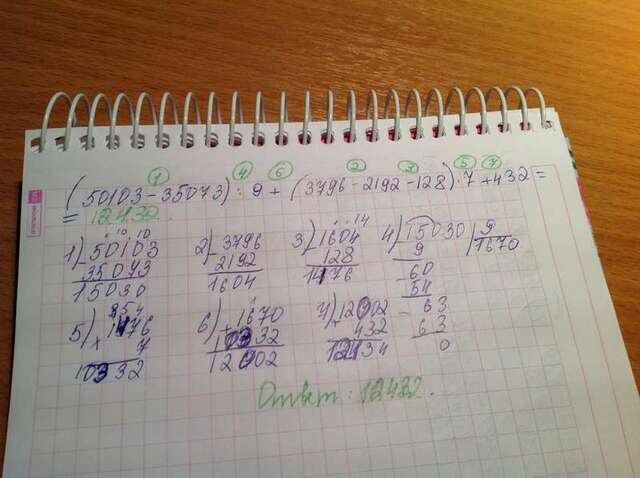 (50103-35073):9+(3796-2192-128)·7+432=
=12432.
1) 50103 2) 3796 3) 1604 4) 15030 9
35073 2192 128 9 1670
15030 1604 1476 60
54
5) 1476 6) 1670 7) 12002 63
7 10332 432 63
10332 12002 12434 0
Ответ: 12432.